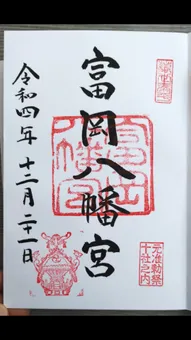 元准勅祭
十社之内
富岡八幡宮
富岡
八幡宮
令和四年 十二月 二十一日